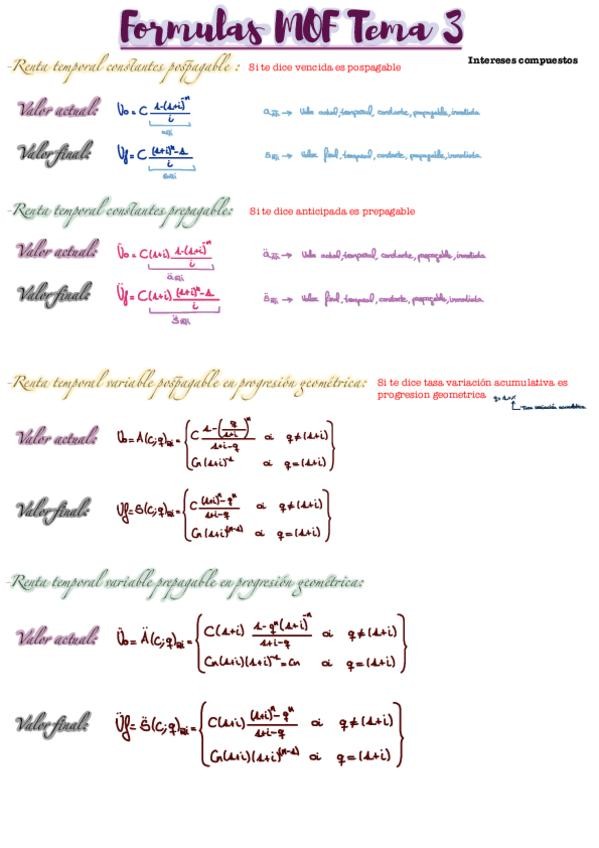 Formulas MOF Tema 3
Intereses compuestos
-Renta temporal constantes pospagable : Si te dice vencida es pospagable
Valor actual: V₀ = C (1-(1+i)⁻ⁿ)/i
a n¬i → Valor actual, temporal, constante, pospagable, inmediata
Valor final: Vf = C ((1+i)ⁿ-1)/i
s n¬i → Valor final, temporal, constante, pospagable, inmediata
-Renta temporal constantes prepagable: Si te dice anticipada es prepagable
Valor actual: V̈₀ = C(1+i) (1-(1+i)⁻ⁿ)/i
ä n¬i → Valor actual, temporal, constante, prepagable, inmediata
Valor final: V̈f = C(1+i) ((1+i)ⁿ-1)/i
s̈ n¬i → Valor final, temporal, constante, prepagable, inmediata
-Renta temporal variable pospagable en progresión geométrica: Si te dice tasa variación acumulativa es
progresion geometrica
Valor actual: V₀ = A(C;q)n¬i = { C (1-(q/(1+i))ⁿ)/(1+i-q) si q≠(1+i)
Cn(1+i)⁻¹ si q=(1+i) }
Valor final: Vf = S(C;q)n¬i = { C ((1+i)ⁿ-qⁿ)/(1+i-q) si q≠(1+i)
Cn(1+i)⁽ⁿ⁻¹⁾ si q=(1+i) }
-Renta temporal variable prepagable en progresión geométrica:
Valor actual: V̈₀ = Ä(C;q)n¬i = { C(1+i) (1-qⁿ(1+i)⁻ⁿ)/(1+i-q) si q≠(1+i)
Cn(1+i)(1+i)⁻¹=Cn si q=(1+i) }
Valor final: V̈f = S̈(C;q)n¬i = { C(1+i) ((1+i)ⁿ-qⁿ)/(1+i-q) si q≠(1+i)
Cn(1+i)(1+i)⁽ⁿ⁻¹⁾ si q=(1+i) }